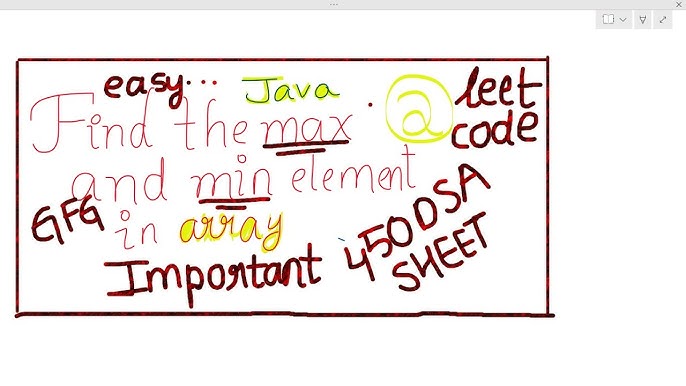 easy... Java
Find the max . @ leet
code
and min element
GFG in array 450 DSA
SHEET
Important